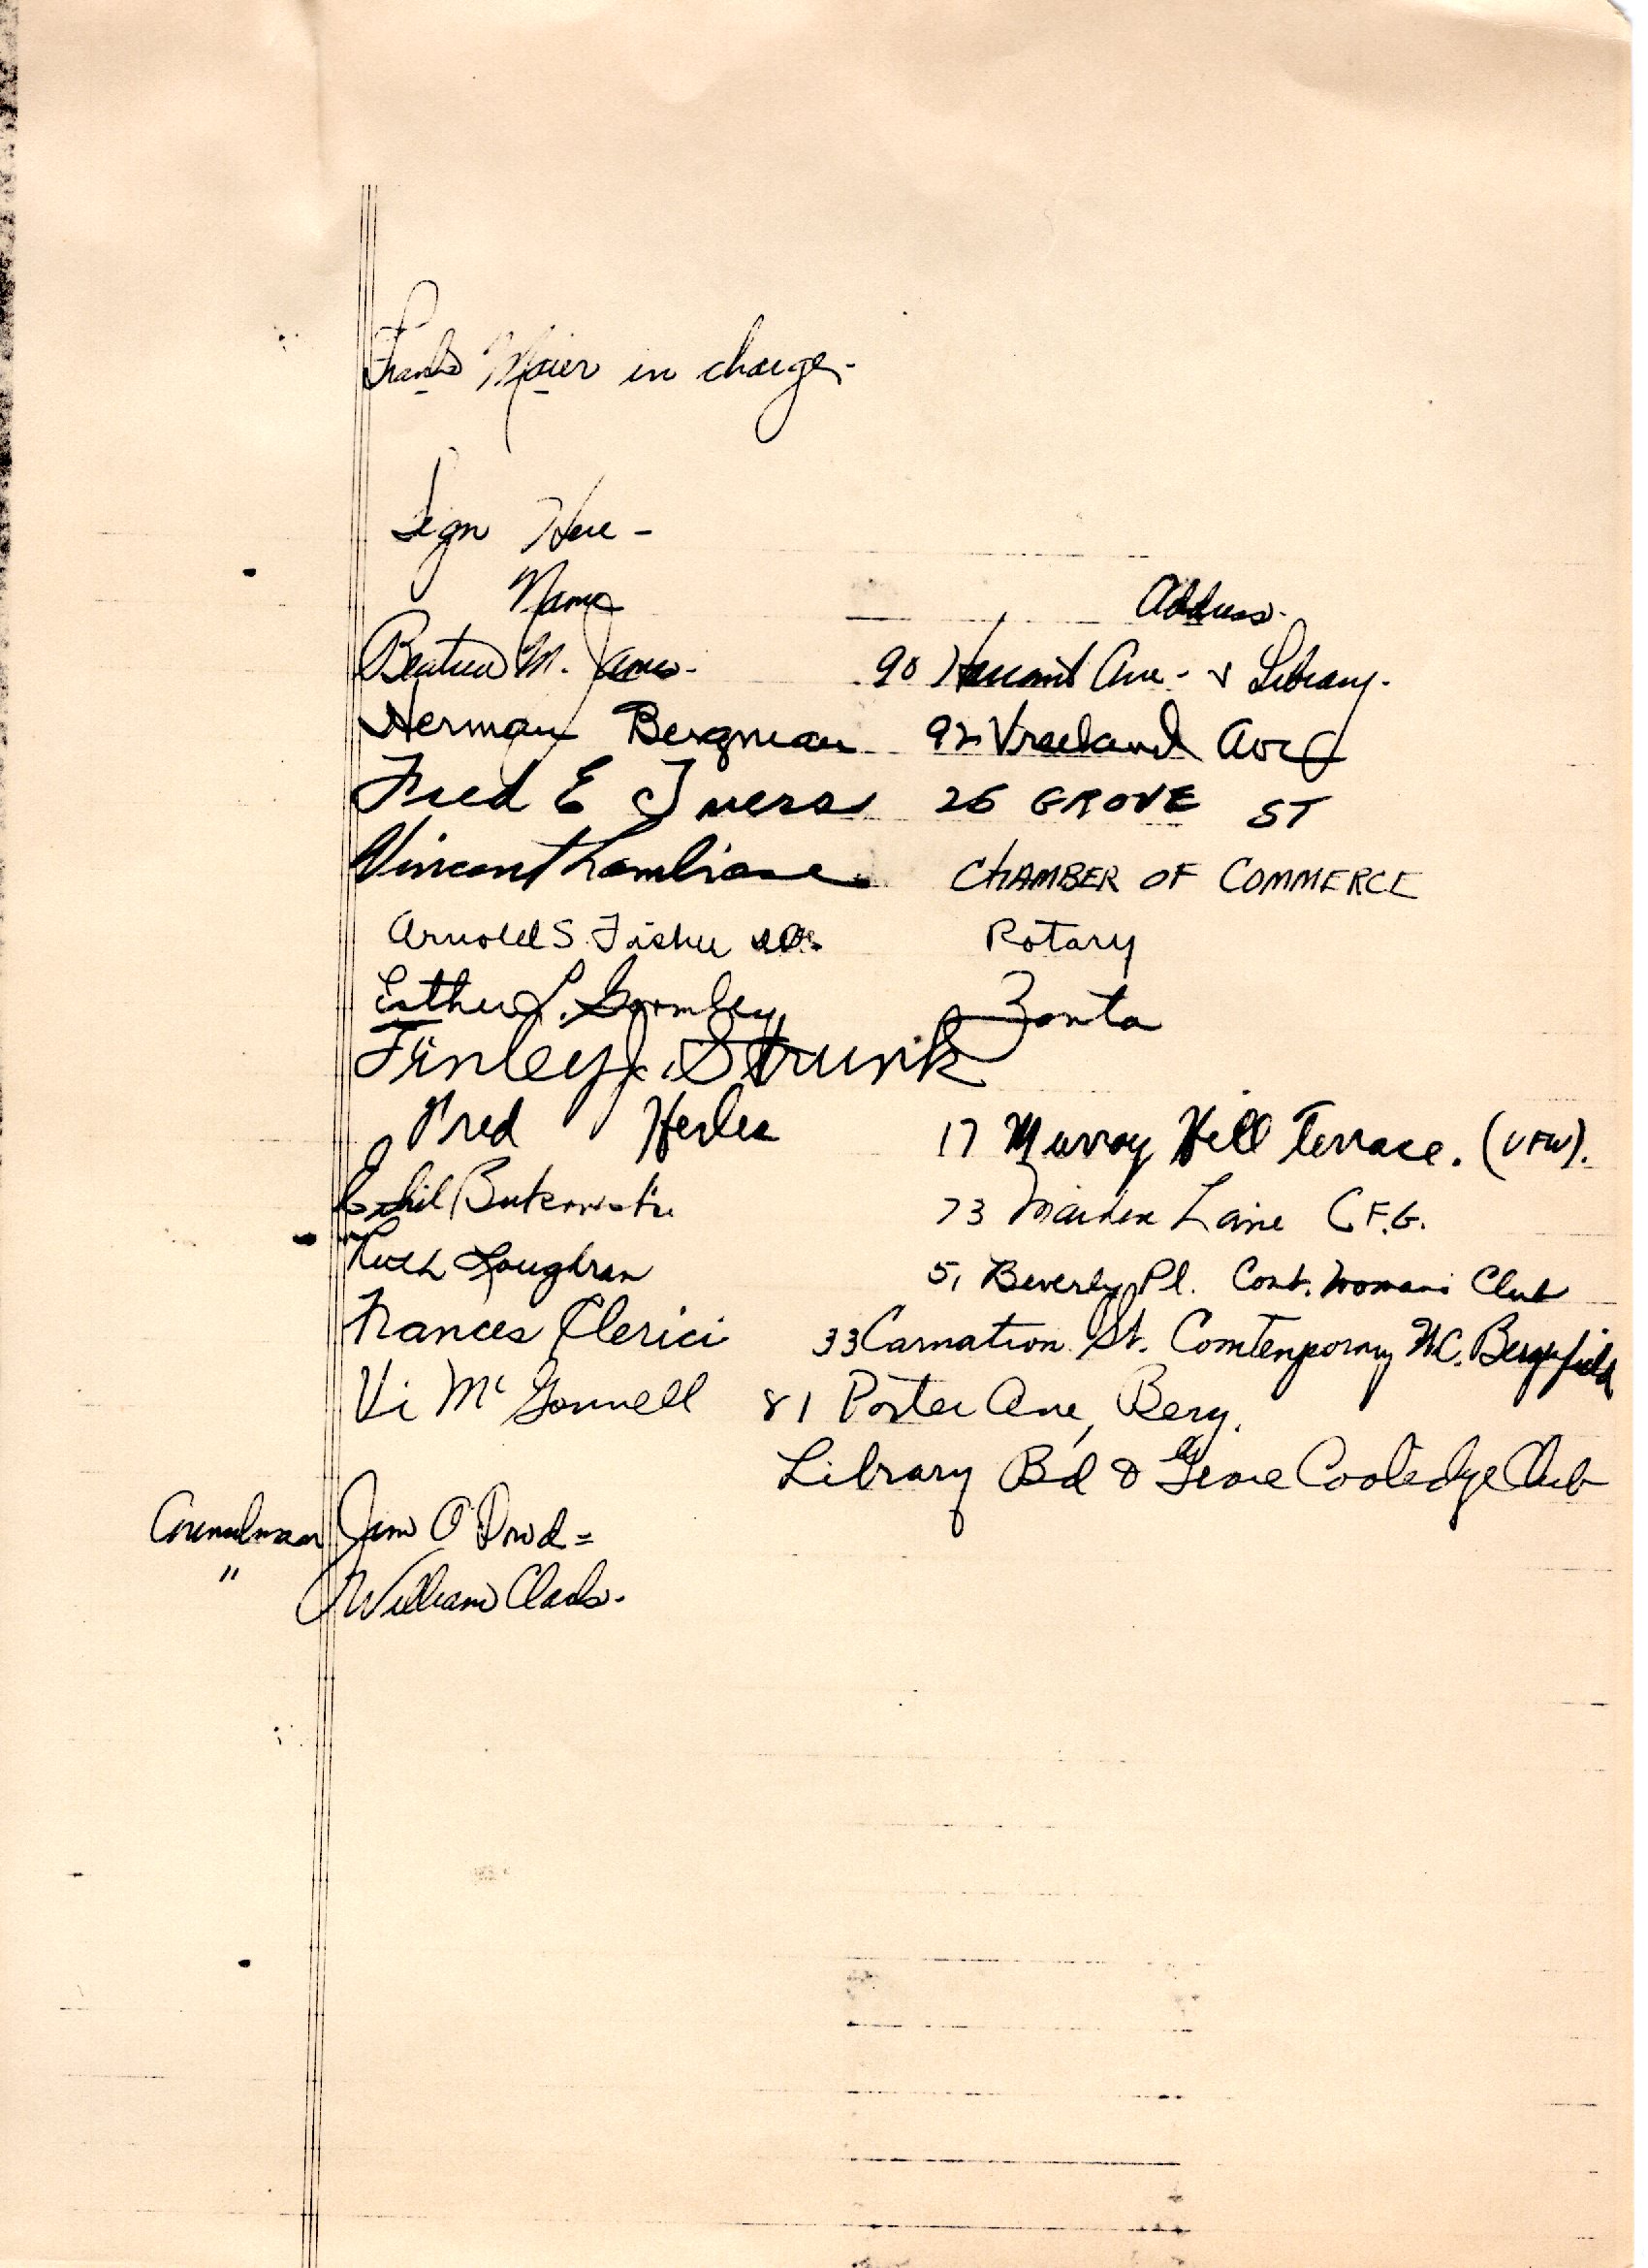 Frank Maier in charge.
Sign Here -
Name Address.
Beatrice M. James. 90 Ave. & Library.
Herman Bergman 92 Vreeland Ave
Fred E 26 GROVE ST
Vincent Lambiase CHAMBER OF COMMERCE
Arnold S. Fisher Rotary
Esther L. Gormley Zonta
Finley J. Strunk
Fred 17 Murray Hill Terrace. (VFW).
73 Maiden Lane C.F.G.
Ruth Loughran 51 Beverly Pl. Cont. Womans Club
Frances Clerici 33 Carnation St. Comtemporary W.C. Bergenfield
Vi McGonnell 81 Porter Ave, Berg.
Library Bd & Grace Cooledge Club
Councilman Jim O'Dowd =
" William